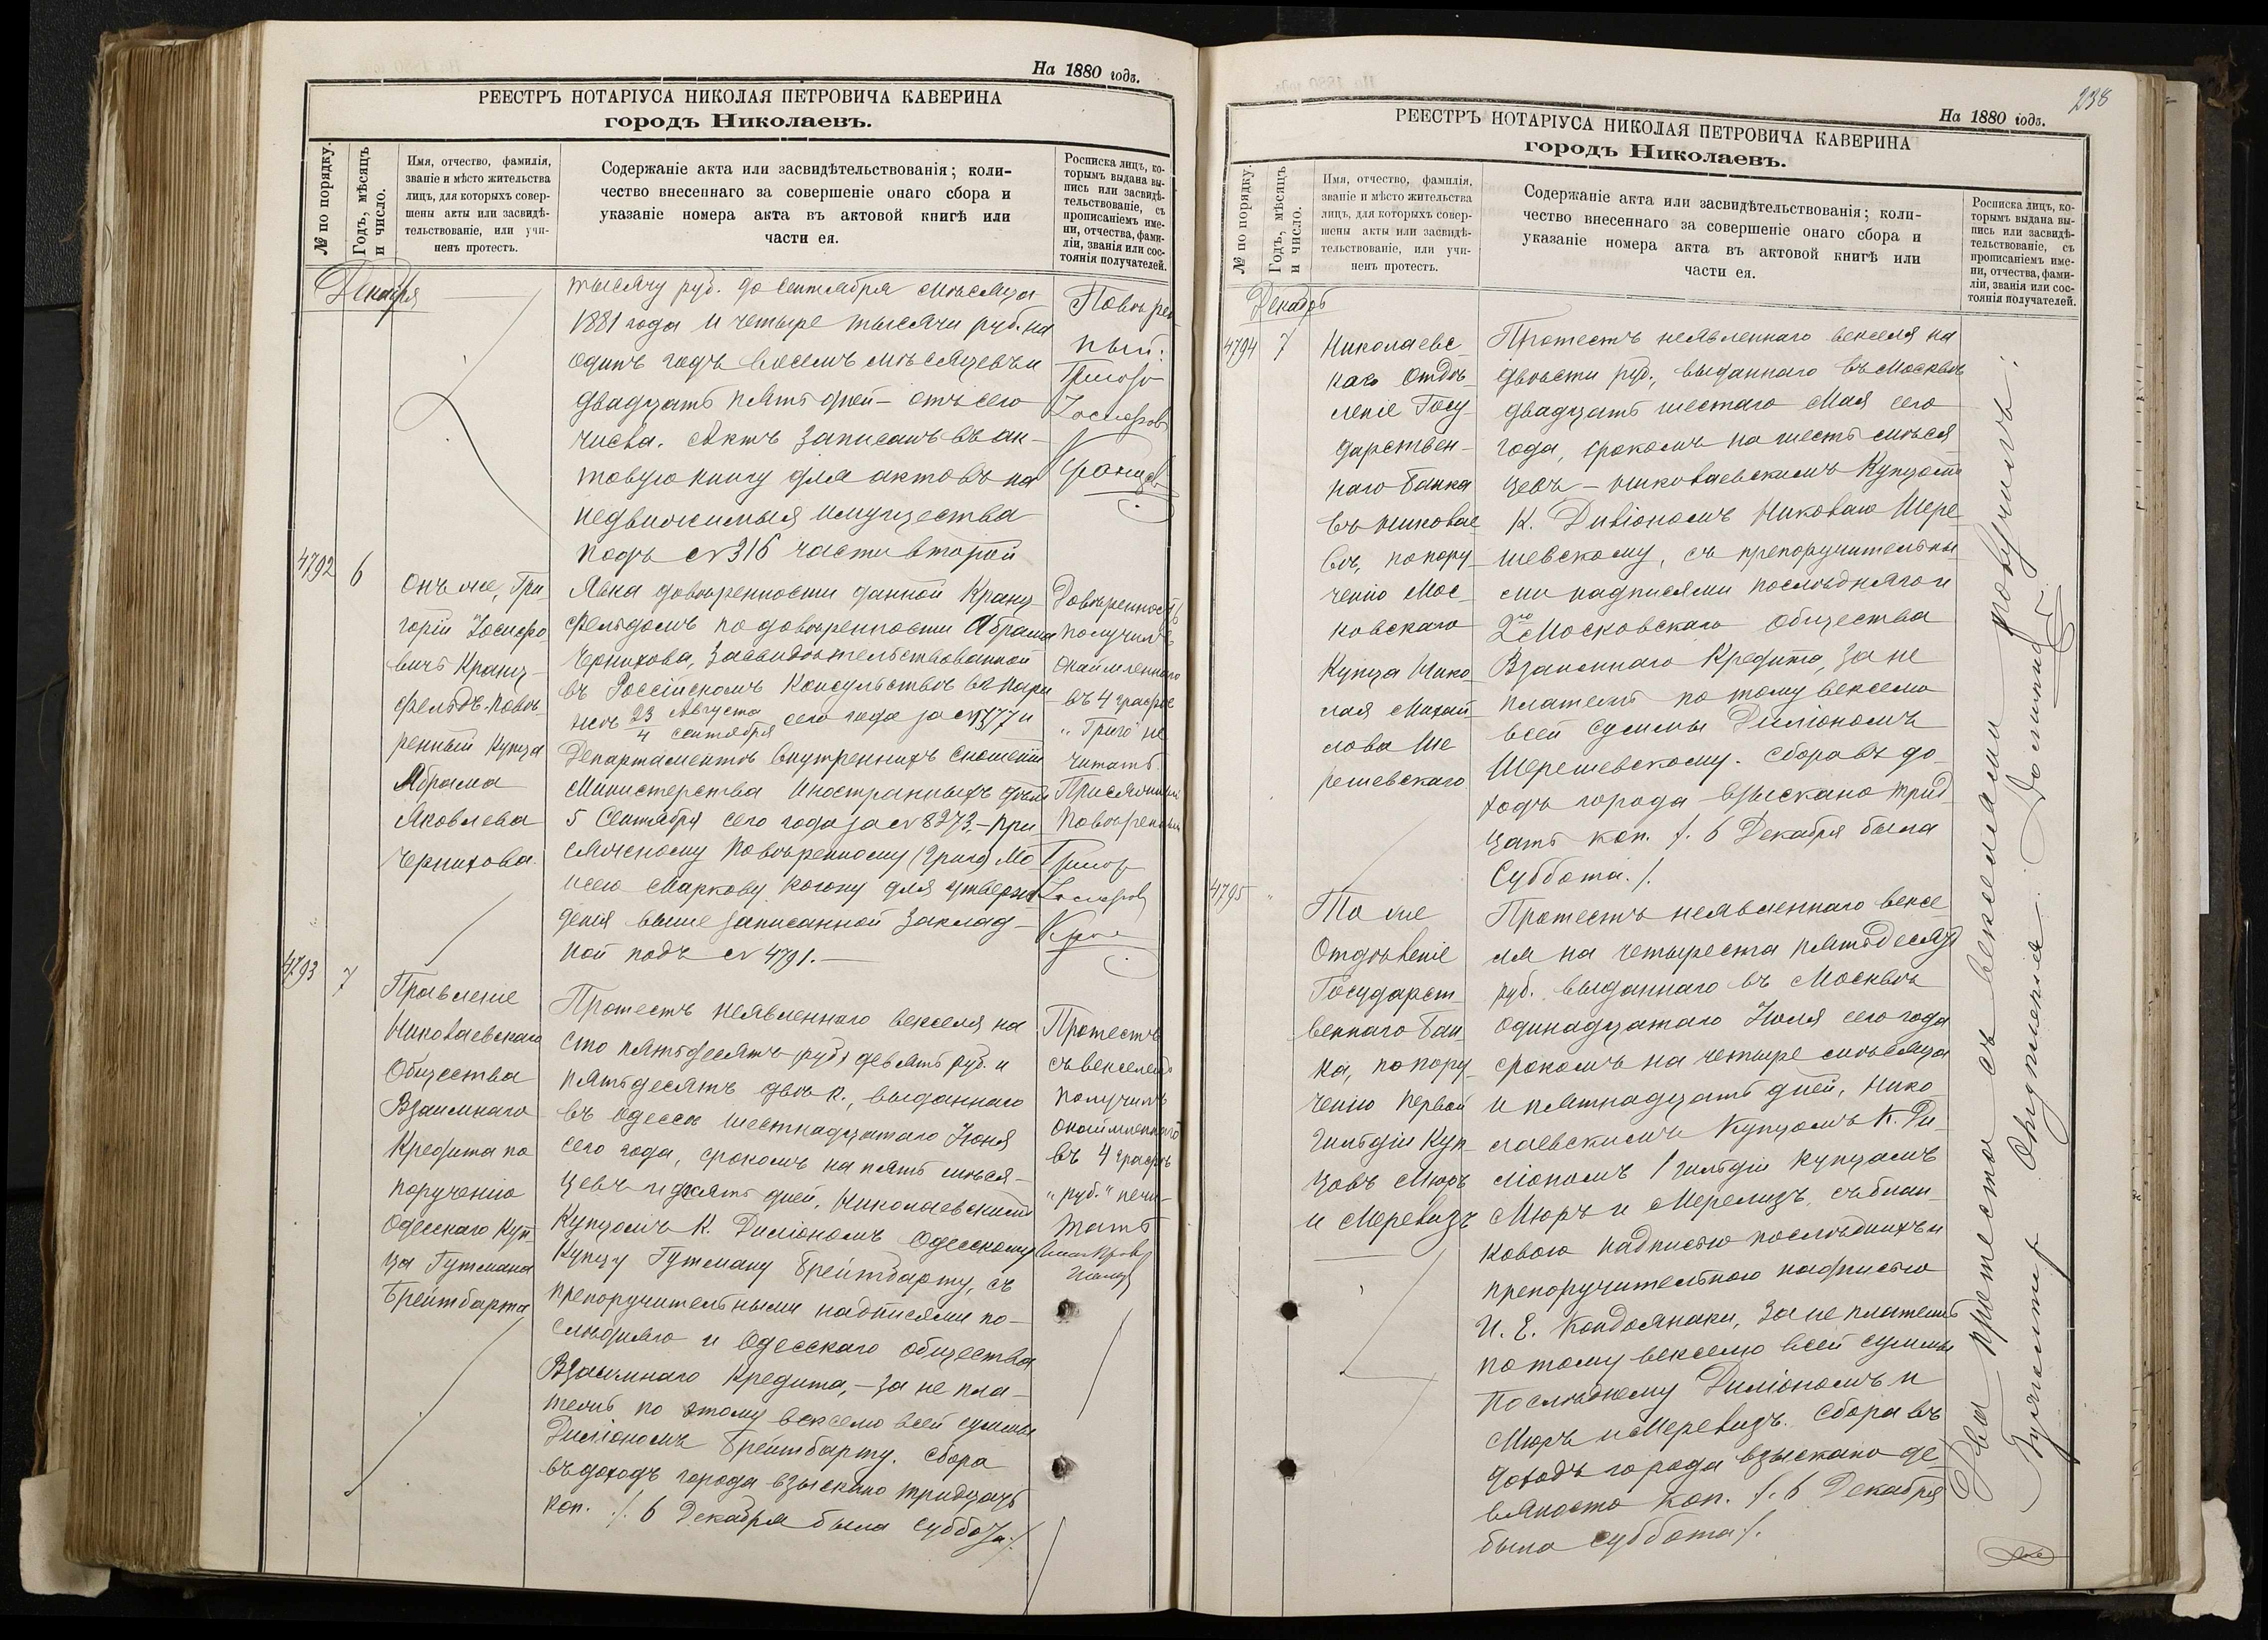 На 1880 годъ.
РЕЕСТРЪ НОТАРІУСА НИКОЛАЯ ПЕТРОВИЧА КАВЕРИНА
городъ Николаевъ.
№ по порядку.
Годъ, мѣсяцъ
и число.
Имя, отчество, фамилія,
званіе и мѣсто жительства
лицъ, для которыхъ совер-
шены акты или засвидѣ-
тельствованіе, или учи-
ненъ протестъ.
Содержаніе акта или засвидѣтельствованія; коли-
чество внесеннаго за совершеніе онаго сбора и
указаніе номера акта въ актовой книгѣ или
части ея.
Росписка лицъ, ко-
торымъ выдана вы-
пись или засвидѣ-
тельствованіе, съ
прописаніемъ име-
ни, отчества, фами-
ліи, званія или сос-
тоянія получателей.
Декабря
тысячу руб. до Сентября мѣсяца
1881 года и четыре тысячи руб. на
одинъ годъ восемь мѣсяцевъ и
двадцать пять дней - отъ сего
числа. Актъ записанъ въ ак-
товую книгу для актовъ на
недвижимыя имущества
подъ № 316 части второй
Повѣрен-
ный:
4792
6
Онъ же, Гри-
горій Іосифо-
вичъ Кранц-
фельдъ повѣ-
ренный купца
Абрама
Яковлева
Чернихова.
Явка довѣренности данной Кранц-
фельдомъ по довѣренности Абрама
Чернихова, засвидѣтельствованной
въ Россійскомъ Консульствѣ въ Пари-
жѣ 23 Августа
4 Сентября сего года за № 1377 и
Департаментѣ Внутреннихъ Сношеній
Министерства Иностранныхъ дѣлъ
5 Сентября сего года за № 8273. - При-
сяжному Повѣренному (Григ) Мо-
исею Маркову Когону для утверж-
денія выше записанной заклад-
ной подъ № 4791.
Довѣренность
получилъ
онаименнаго
въ 4 графѣ
"Григ" не
читать.
Присяжный
Повѣренный
4793
7
Правленіе
Николаевскаго
Общества
Взаимнаго
Кредита по
порученію
Одесскаго Куп-
ца Гутмана
Брейтбарта
Протестъ неявленнаго векселя на
сто пятьдесятъ (руб) девять руб. и
пятьдесятъ двѣ к., выданнаго
въ Одессѣ шестнадцатаго Іюня
сего года, срокомъ на пять мѣся-
цевъ и десять дней, Николаевскимъ
Купцомъ К. Диліономъ Одесскому
Купцу Гутману Брейтбарту, съ
препоручительными надписями по-
слѣдняго и Одесскаго общества
Взаимнаго Кредита, - за не пла-
тежъ по этому векселю всей суммы
Диліономъ Брейтбарту. Сбора
въ доходъ города взыскано тридцать
коп. /. 6 Декабря была суббота /.
Протестъ
съ векселемъ
получилъ
онаименнаго
въ 4 графѣ
"руб." нечи-
тать
238
На 1880 годъ.
РЕЕСТРЪ НОТАРІУСА НИКОЛАЯ ПЕТРОВИЧА КАВЕРИНА
городъ Николаевъ.
№ по порядку.
Годъ, мѣсяцъ
и число.
Имя, отчество, фамилія,
званіе и мѣсто жительства
лицъ, для которыхъ совер-
шены акты или засвидѣ-
тельствованіе, или учи-
ненъ протестъ.
Содержаніе акта или засвидѣтельствованія; коли-
чество внесеннаго за совершеніе онаго сбора и
указаніе номера акта въ актовой книгѣ или
части ея.
Росписка лицъ, ко-
торымъ выдана вы-
пись или засвидѣ-
тельствованіе, съ
прописаніемъ име-
ни, отчества, фами-
ліи, званія или сос-
тоянія получателей.
Декабрь
4794
7
Николаевс-
каго Отдѣ-
леніе Госу-
дарствен-
наго Банка
въ Николае-
вѣ, по пору-
ченію Мос-
ковскаго
Купца Нико-
лая Михай-
лова Ше-
решевскаго
Протестъ неявленнаго векселя на
двѣсти руб., выданнаго въ Москвѣ
двадцать шестаго Мая сего
года, срокомъ на шесть мѣся-
цевъ - Николаевскимъ Купцомъ
К. Диліономъ Николаю Шере-
шевскому, съ препоручительны-
ми надписями послѣдняго и
2го Московскаго Общества
Взаимнаго Кредита, за не
платежъ по тому векселю
всей суммы Диліономъ
Шерешевскому. Сбора въ до-
ходъ города взыскано трид-
цать коп. /. 6 Декабря была
Суббота. /.
4795
"
То же
Отдѣленіе
Государст-
веннаго Бан-
ка, по пору-
ченію первой
Гильдіи Куп-
цовъ Мюръ
и Мерелизъ
Протестъ неявленнаго вексе-
ля на четыреста пятьдесятъ
руб. выданнаго въ Москвѣ
Одинадцатаго Іюля сего года
срокомъ на четыре мѣсяца
и пятнадцать дней, Нико-
лаевскимъ Купцомъ К. Ди-
ліономъ 1 гильдіи купцамъ
Мюръ и Мерелизъ, съ блан-
ковою надписью послѣднихъ и
препоручительною надписью
И. Е. Кондоянаки, за не платежъ
по тому векселю всей суммы
Послѣднему Диліономъ и
Мюръ и Мерелизъ. Сбора въ
доходъ города взыскано де-
вяносто коп. /. 6 Декабря
была суббота /.
Два протеста съ векселями получилъ: